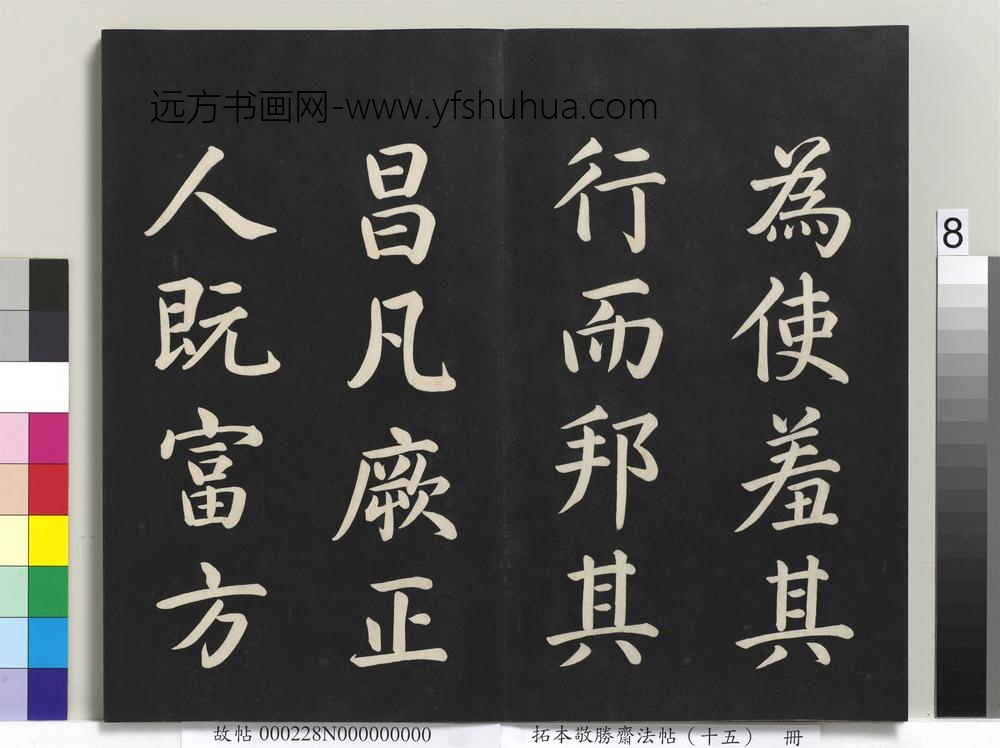 远方书画网-www.yfshuhua.com
為使羞其
行而邦其
昌凡厥正
人既富方
8
故帖 000228N000000000
拓本敬勝齋法帖（十五） 冊